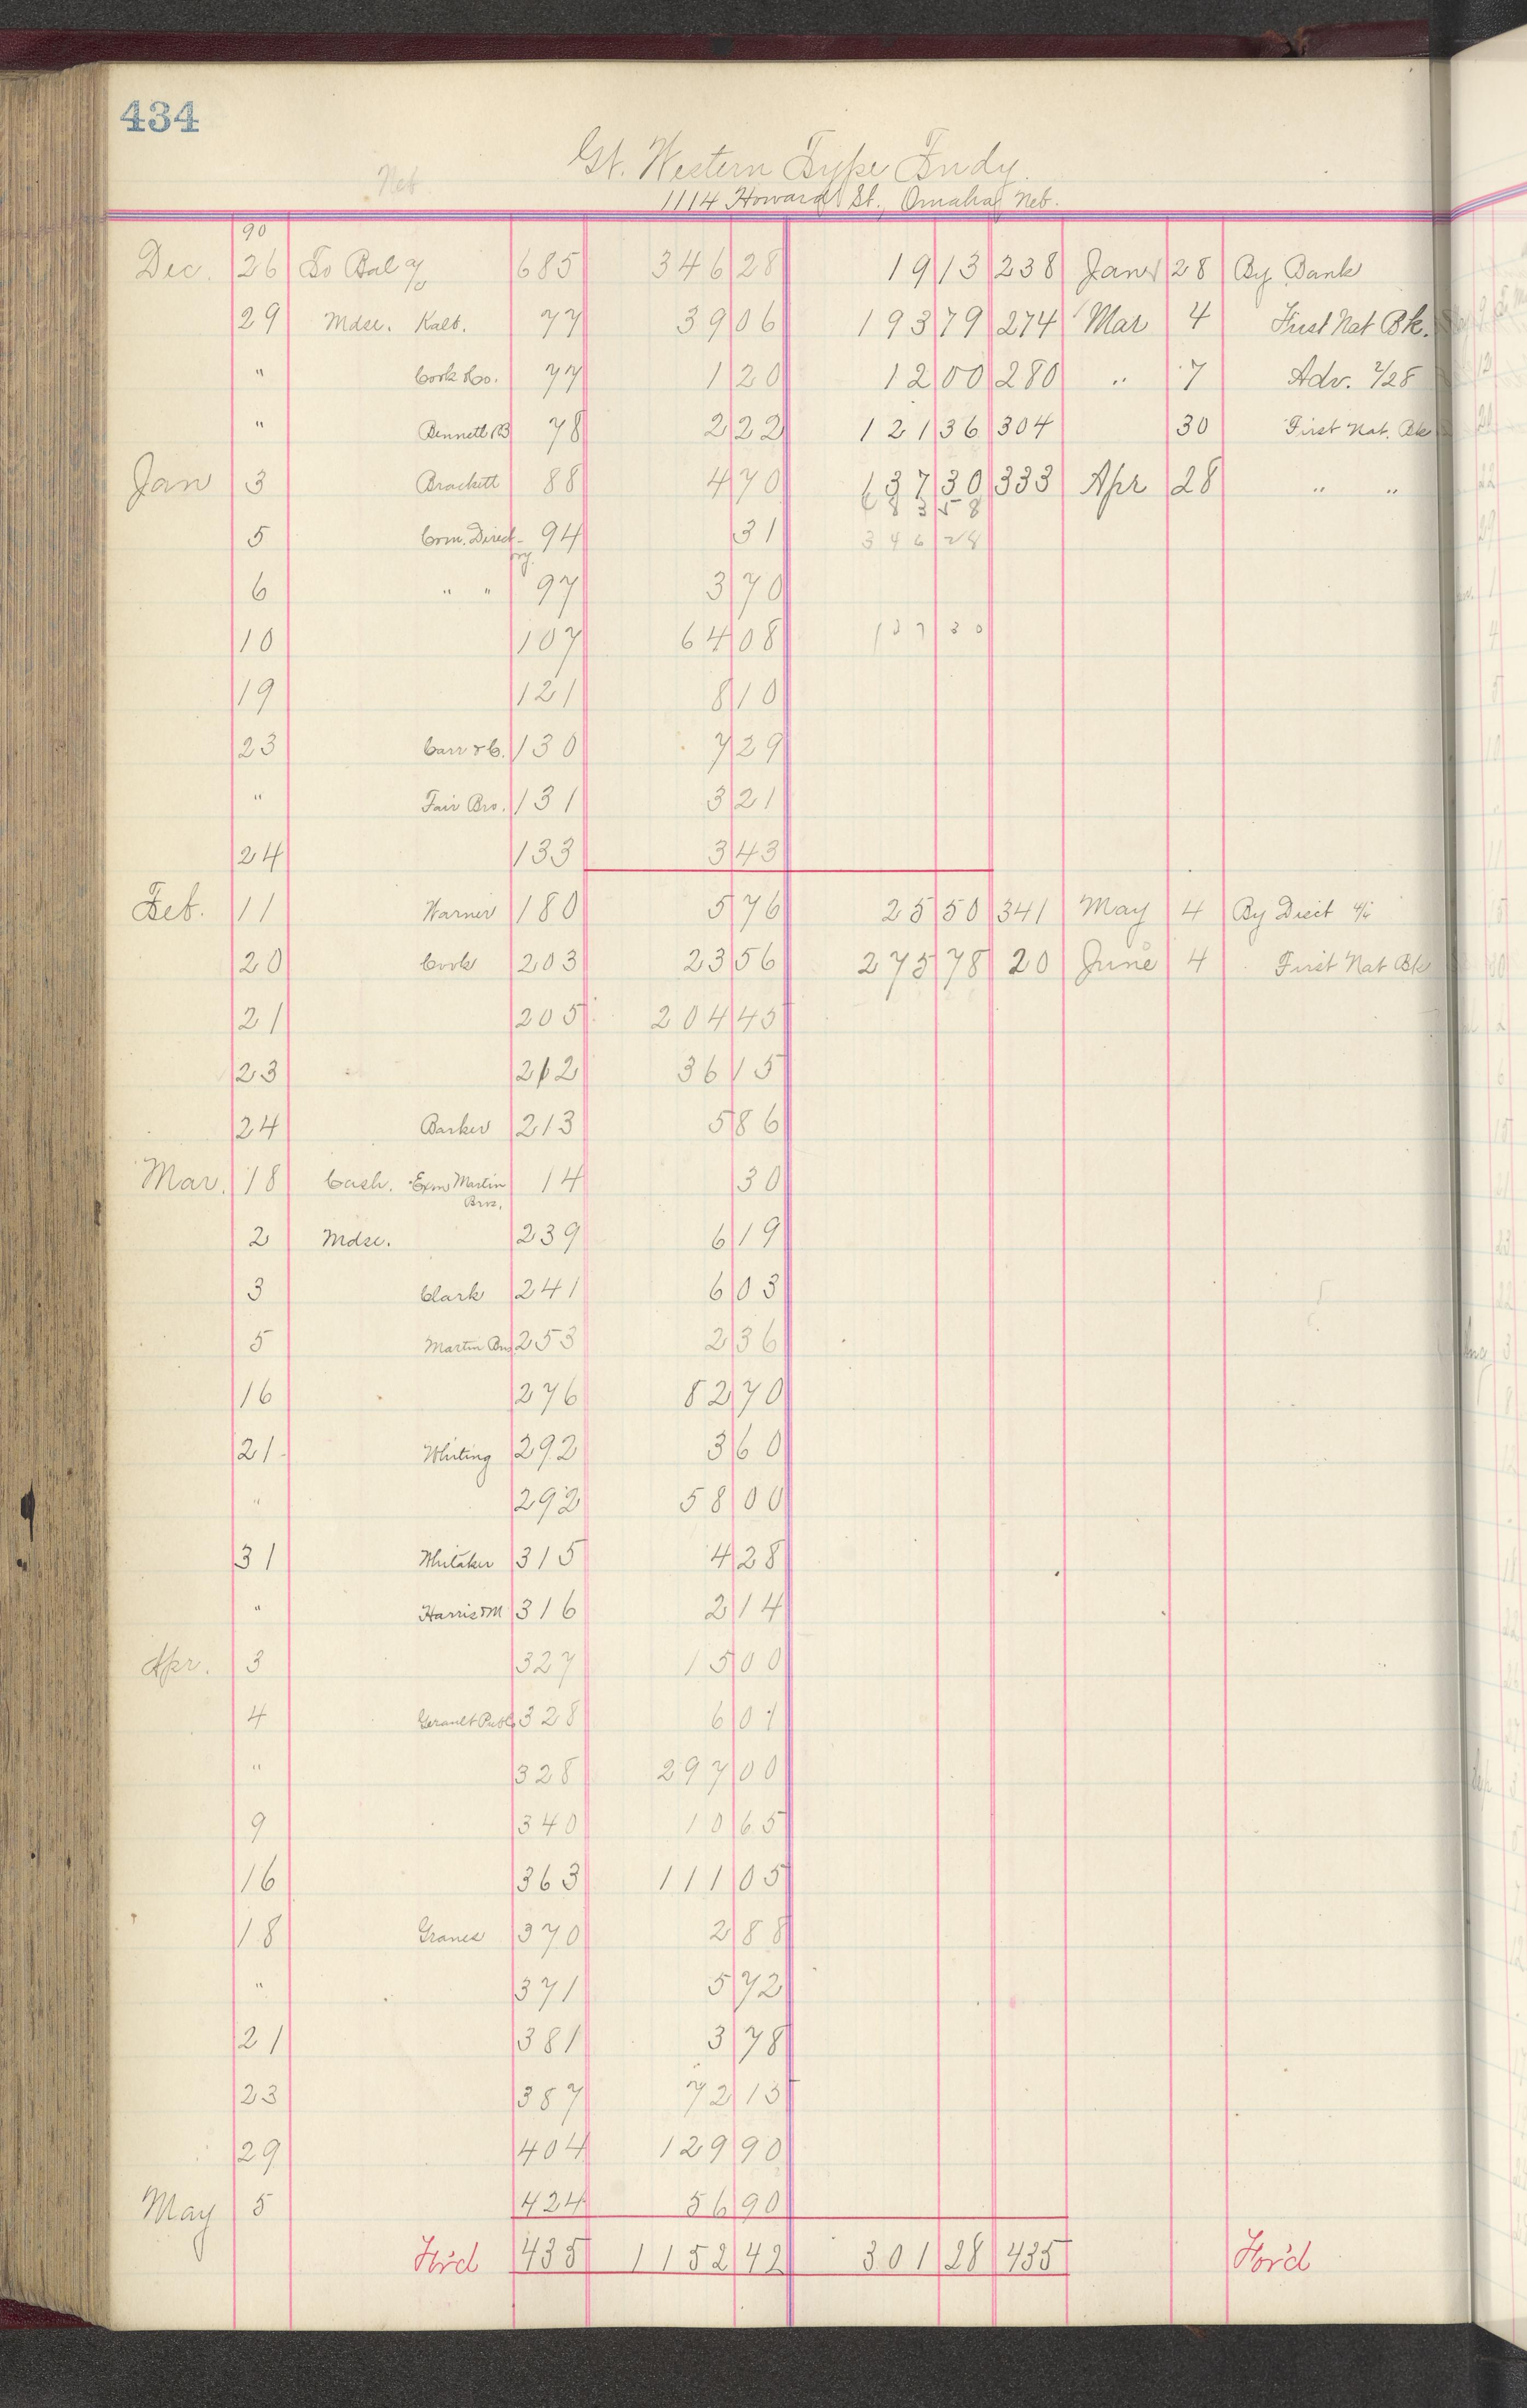 434
Neb.
Gt. Western Type Fndy.
1114 Howard St., Omaha, Neb.
90
Dec. 26 To Bal 685 346 28 19 13 238 Jan 28 By Bank
29 Mdse. Kalb. 77 39 06 193 79 274 Mar 4 First Nat Bk.
" Cook Co. 77 1 20 12 00 280 " 7 Adv. 2/28
" Bennett 78 2 22 121 36 304 30 First Nat. Bk
Jan 3 Brackett 88 4 70 137 30 333 Apr 28 " "
683 58
5 Com. Direct- 94 31 346 28
ory.
6 " " 97 3 70
10 107 64 08 137 30
19 121 8 10
23 Carr & C. 130 7 29
" Fair Bro. 131 3 21
24 133 3 43
Feb. 11 Warner 180 5 76 25 50 341 May 4 By Disct
20 Cook 203 23 56 275 78 20 June 4 First Nat Bk
21 205 204 45
23 212 36 15
24 Barker 213 5 86
Mar. 18 Cash. Exm Martin 14 30
Bros.
2 Mdse. 239 6 19
3 Clark 241 6 03
5 Martin Bro 253 2 36
16 276 82 70
21 Whiting 292 3 60
" 292 58 00
31 Whitaker 315 4 28
" Harris & M 316 2 14
Apr. 3 327 15 00
4 Publ. 328 6 01
" 328 297 00
9 340 10 65
16 363 111 05
18 Graves 370 2 88
" 371 5 72
21 381 3 78
23 387 72 15
29 404 129 90
May 5 424 56 90
For'd 435 1152 42 301 28 435 For'd